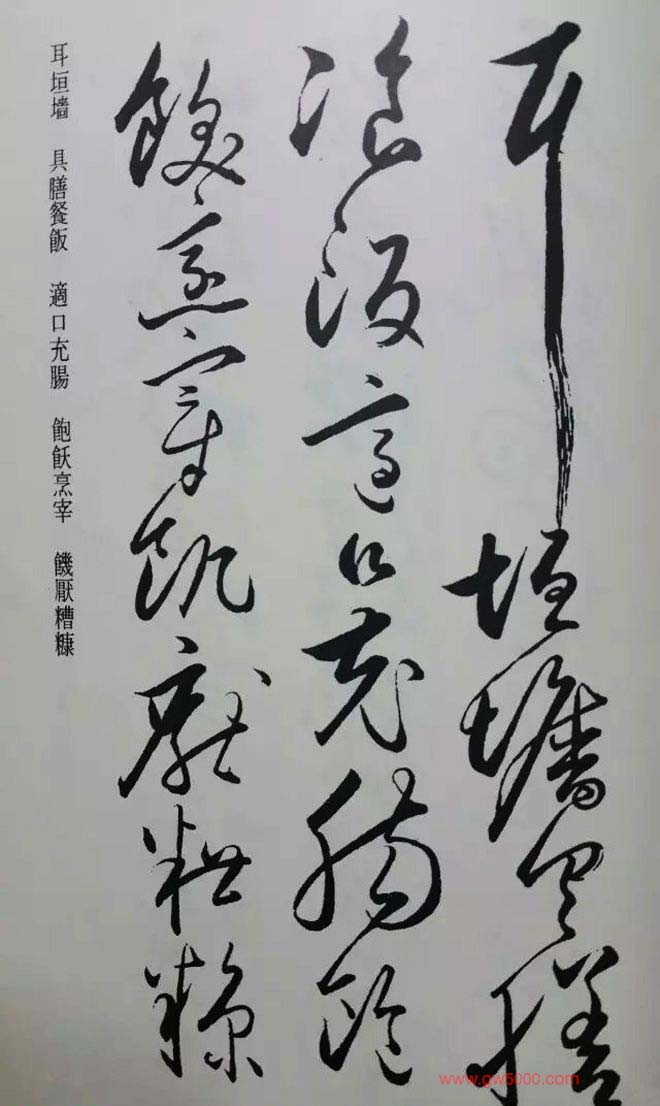 耳垣墻具膳
飡飯適口充腸飽
飫烹宰飢厭糟糠
耳垣墻 具膳餐飯 適口充腸 飽飫烹宰 饑厭糟糠
www.gw5000.com